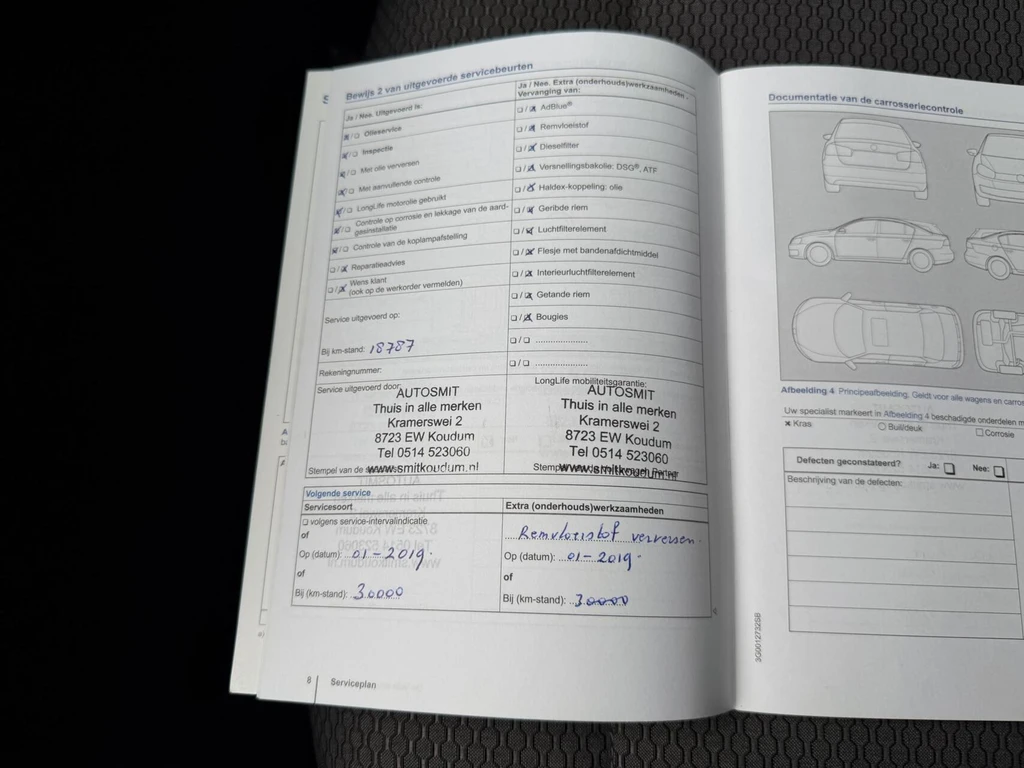 Bewijs 2 van uitgevoerde servicebeurten
Ja / Nee. Uitgevoerd is:
Olieservice
Inspectie
Met olie verversen
Met aanvullende controle
LongLife motorolie gebruikt
Controle op corrosie en lekkage van de aard-
gasinstallatie
Controle van de koplampafstelling
Reparatieadvies
Wens klant
(ook op de werkorder vermelden)
Service uitgevoerd op:
Bij km-stand: 18787
Rekeningnummer:
Ja / Nee. Extra (onderhouds)werkzaamheden.
Vervanging van:
AdBlue®
Remvloeistof
Dieselfilter
Versnellingsbakolie: DSG®, ATF
Haldex-koppeling: olie
Geribde riem
Luchtfilterelement
Flesje met bandenafdichtmiddel
Interieurluchtfilterelement
Getande riem
Bougies
Service uitgevoerd door:
AUTOSMIT
Thuis in alle merken
Kramerswei 2
8723 EW Koudum
Tel 0514 523060
www.smitkoudum.nl
Stempel van de
LongLife mobiliteitsgarantie:
AUTOSMIT
Thuis in alle merken
Kramerswei 2
8723 EW Koudum
Tel 0514 523060
www.smitkoudum.nl
Volgende service
Servicesoort
volgens service-intervalindicatie
of
Op (datum): 01-2019.
of
Bij (km-stand): 30000
Extra (onderhouds)werkzaamheden
Remvloeistof verversen.
Op (datum): 01-2019.
of
Bij (km-stand): 30000
8 Serviceplan
Documentatie van de carrosseriecontrole
Afbeelding 4 Principeafbeelding. Geldt voor alle wagens en
Uw specialist markeert in Afbeelding 4 beschadigde onderdelen
Kras
Buil/deuk
Corrosie
Defecten geconstateerd? Ja: Nee:
Beschrijving van de defecten:
3G0012732SB